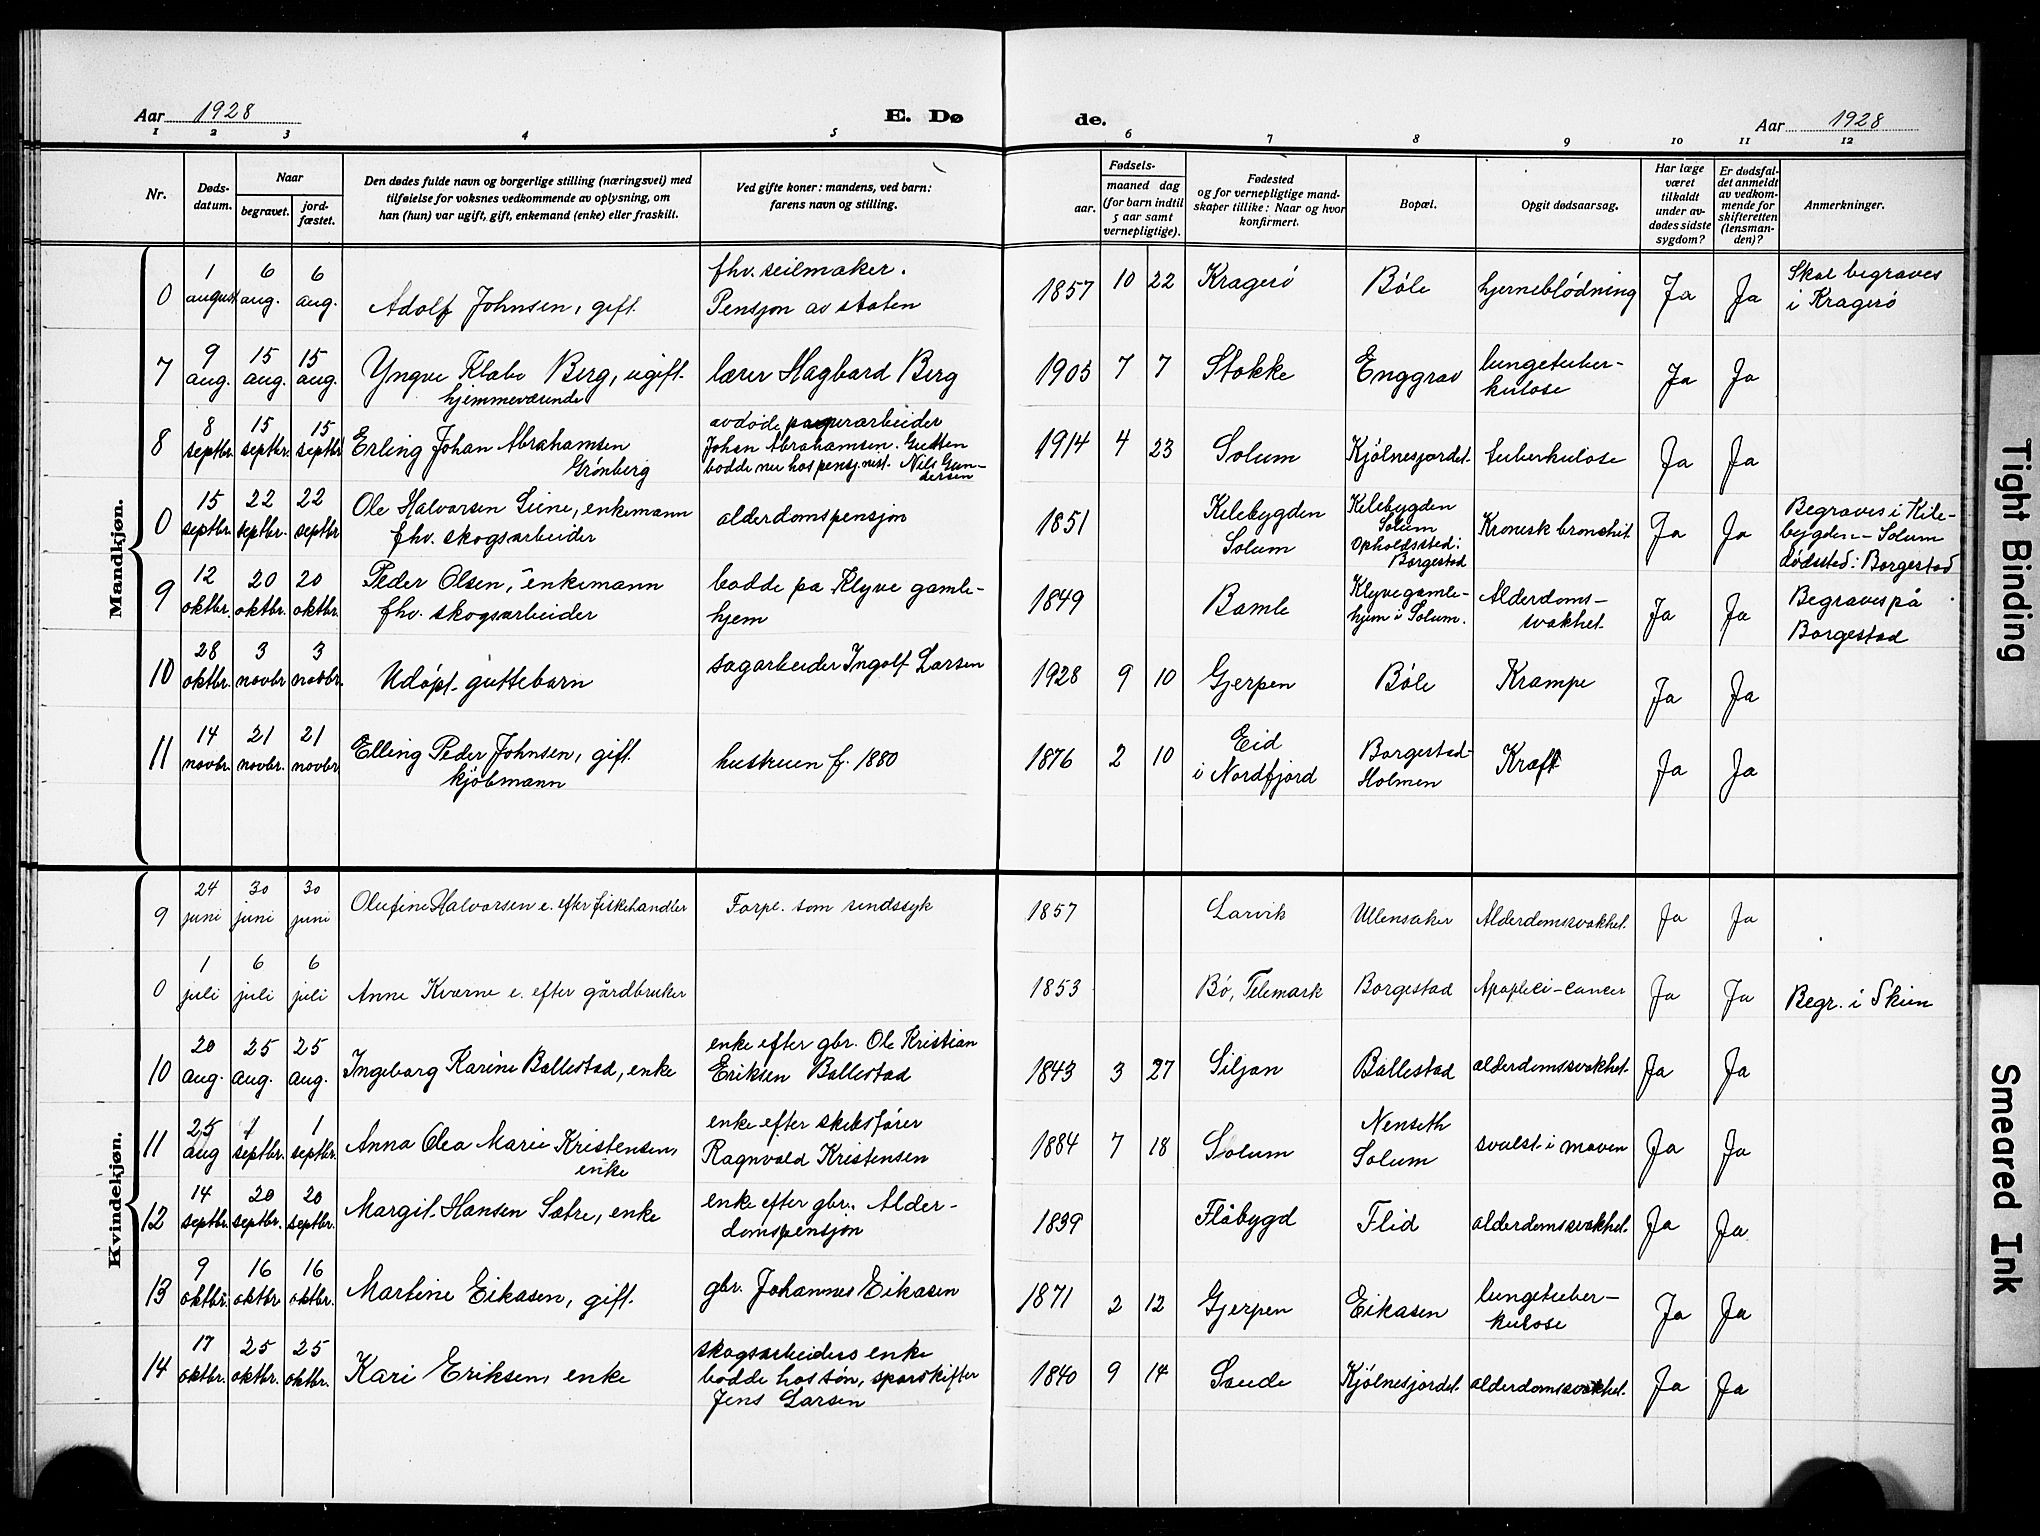 Aar 1928 E. Dø de. Aar 1928
1 2 3 4 5 6 7 8 9 10 11 12
Nr. Døds-datum. Naar begravet. jord-fæstet. Den dødes fulde navn og borgerlige stilling (næringsvei) med tilføielse for voksnes vedkommende av oplysning, om han (hun) var ugift, gift, enkemand (enke) eller fraskilt. Ved gifte koner: mandens, ved barn: farens navn og stilling. Fødsels- aar. maaned dag (for barn indtil 5 aar samt vernepligtige). Fødested og for vernepligtige mand-skaper tillike: Naar og hvor konfirmert. Bopæl. Opgit dødsaarsag. Har læge været tilkaldt under av-dødes sidste sygdom? Er dødsfal-det anmeldt av vedkom-mende for skifteretten (lensman-den)? Anmerkninger.
Mandkjøn.
0 1 august 6 aug. 6 aug. Adolf Johnsen, gift. fhv. seilmaker. Pensjon av staten 1857 10 22 Kragerö Bøle hjerneblödning Ja Ja Skal begraves i Kragerö
7 9 aug. 15 aug. 15 aug. Yngve Klabo Berg, ugift. hjemmeværende lærer Hagbard Berg 1905 7 7 Stokke Enggrav lungetuber-kulose Ja Ja
8 8 septbr. 15 septbr. 15 septbr. Erling Johan Abrahamsen Grönberg avdöde papirarbeider Johan Abrahamsen. Gutten bodde nu hos pensj.nist. Nils Gun-dersen 1914 4 23 Solum Kjölnesjordet. tuberkulose Ja Ja
0 15 septbr. 22 septbr. 22 septbr Ole Halvorsen Liene, enkemann fhv. skogsarbeider alderdomspensjon 1851 Kilebygden Solum Kilebygden Solum Opholdssted: Borgestad Kronisk bronchit Ja Ja Begraves i Kile-bygden - Solum dödssted: Borgestad
9 12 oktbr. 20 oktbr. 20 oktbr. Peder Olsen, enkemann fhv. skogsarbeider bodde på Klyve gamle-hjem 1849 Bamle Klyve gamle-hjem i Solum. Alderdoms-svakhet. Ja Ja Begraves på Borgestad
10 28 oktbr. 3 novbr 3 novbr. Udöpt guttebarn sagarbeider Ingolf Larsen 1928 9 10 Gjerpen Bøle Krampe Ja Ja
11 14 novbr. 21 novbr. 21 novbr Elling Peder Johnsen, gift. kjöbmann hustruen f. 1880 1876 2 10 Eid i Nordfjord Borgestad-Holmen Kræft Ja Ja
Kvindekjøn.
9 24 juni 30 juni 30 juni Olufine Halvorsen e. efter fiskehandler Forpl. som sindssyk 1857 Larvik Ullensaker Alderdomssvakhet. Ja Ja
0 1 juli 6 juli 6 juli Anne Kværne e. efter gårdbruker 1853 Bö, Telemark Borgestad Apoplexi-cancer Ja Ja Begr. i Skien
10 20 aug. 25 aug. 25 aug. Ingeborg Karine Ballestad, enke enke efter gbr. Ole Kristian Eriksen Ballestad 1843 3 27 Siljan Ballestad alderdomssvakhet. Ja Ja
11 25 aug 1 septbr. 1 septbr. Anna Olea Marie Kristensen, enke enke efter skibsförer Ragnvald Kristensen 1884 7 18 Solum Nenseth Solum svulst i maven Ja Ja
12 14 septbr. 20 septbr. 20 septbr. Margit Hansen Sætre, enke enke efter gbr. Alder-domspensjon 1839 Flåbygd Flid alderdomssvakhet. Ja Ja
13 9 oktbr. 16 oktbr 16 oktbr. Martine Eikasen, gift. gbr. Johannes Eikasen 1871 2 12 Gjerpen Eikasen lungetuber-kulose Ja Ja
14 17 oktbr. 25 oktbr. 25 oktbr. Kari Eriksen, enke skogsarbeiders enke bodde hos sön, sporskifter Jens Larsen 1840 9 14 Saude Kjölnesjordet alderdomssvakhet. Ja Ja
Tight Binding
Smeared Ink